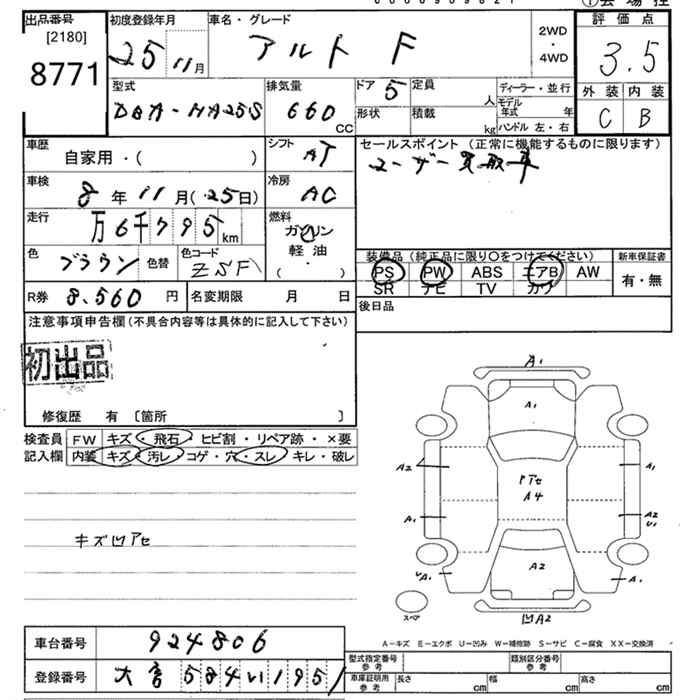 出品番号
[2180]
8771
初度登録年月
25 11月
車名・グレード
アルト F
2WD
・
4WD
評価点
3.5
外装 内装
C B
型式
DBA-HA25S
排気量
660 CC
ドア 5
定員
人
形状
積載
kg
ディーラー・並行
モデル年式 年
ハンドル 左・右
車歴
自家用・( )
シフト
AT
セールスポイント (正常に機能するものに限ります)
ユーザー買取車
車検
8年11月(25日)
冷房
AC
走行
万6千795km
燃料
ガソリン
軽油
・
( )
色
ブラウン
色替
色コード
ZSF
装備品 (純正品に限り○をつけてください)
PS PW ABS エアB AW
SR ナビ TV カワ
新車保証書
有・無
R券 8,560円
名変期限 月 日
後日品
注意事項申告欄(不具合内容等は具体的に記入して下さい)
初出品
修復歴 有 〔箇所 〕
検査員
記入欄
FW キズ・飛石・ヒビ割・リペア跡・×要
内装 キズ・汚レ・コゲ・穴・スレ・キレ・破レ
キズ凹アセ
A1
A1
A2
A1
アセ
A4
A1
A2
U1
UA1
A2
A1
スペア
凹A2
A-キズ E-エクボ U-凹み W-補修跡 S-サビ C-腐食 XX-交換済
車台番号 924806
登録番号
584い1951
型式指定番号
参考
類別区分番号
参考
車庫証明用
参考
長さ cm
幅 cm
高さ cm